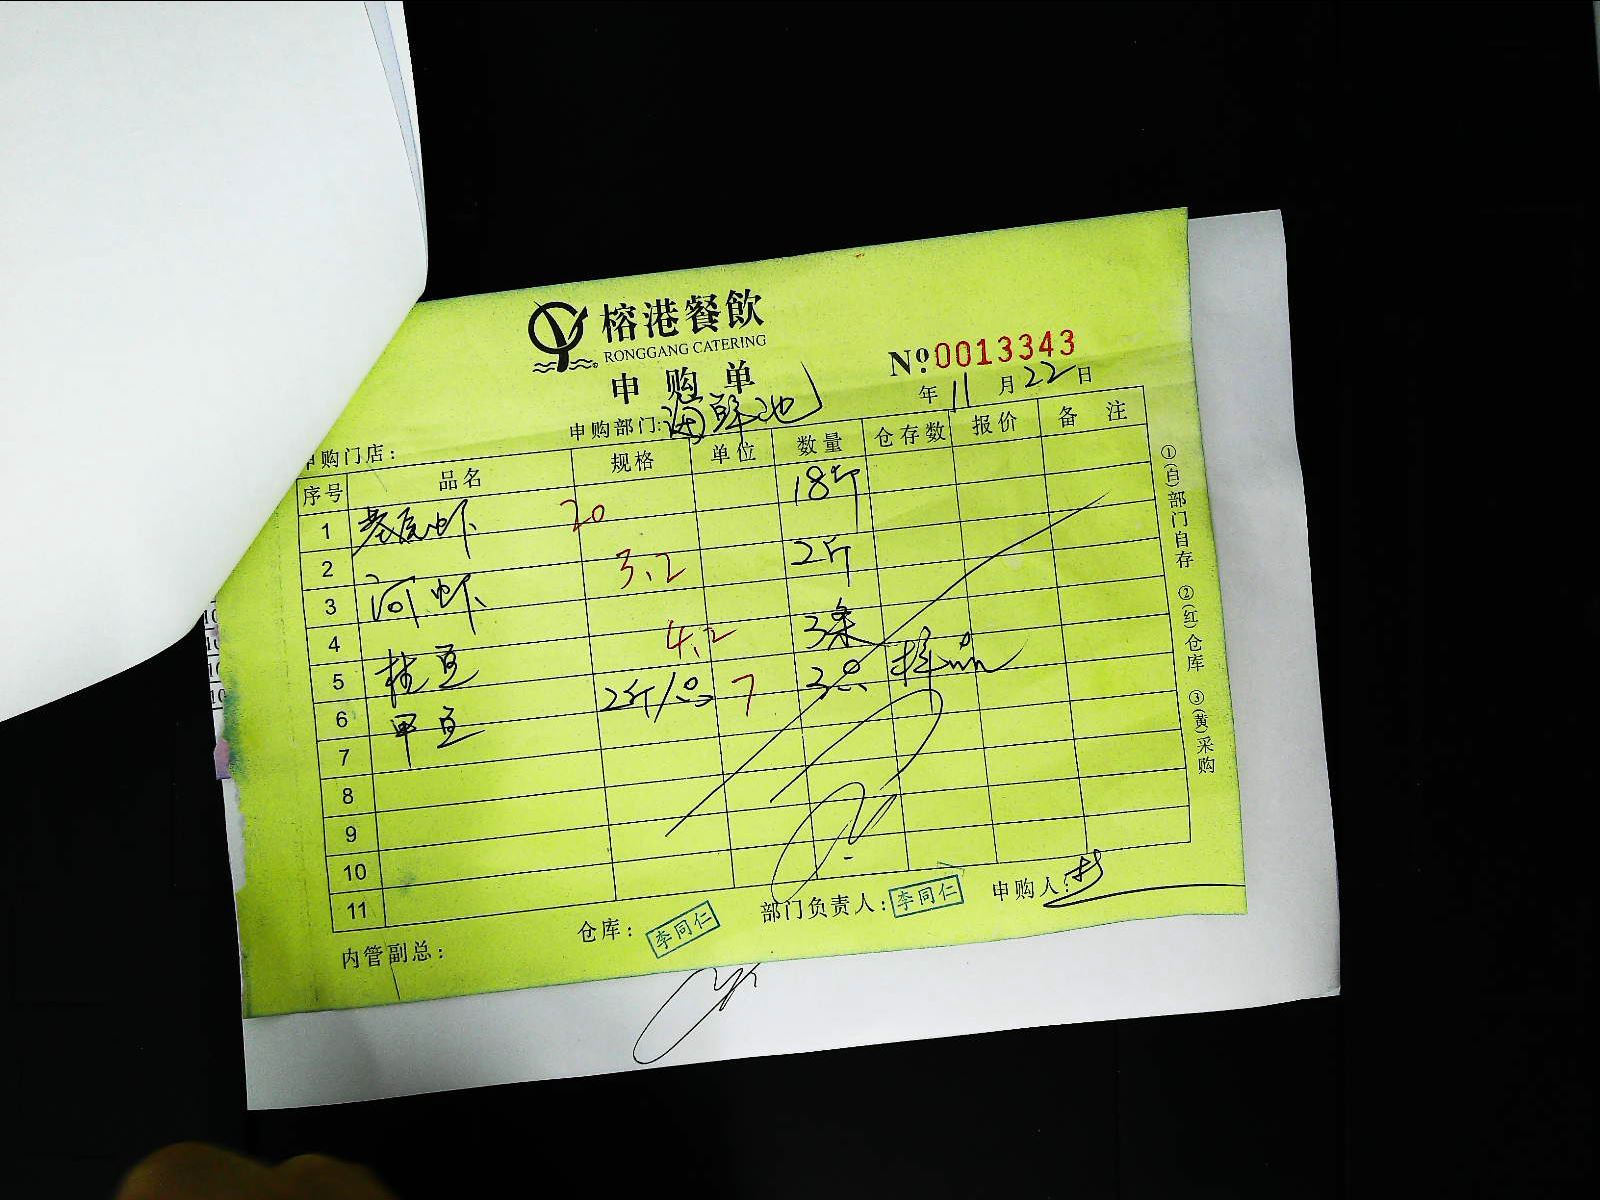 榕港餐飲
RONGGANG CATERING
申购单
Nº:0013343
年 11 月 22 日
申购门店: 申购部门: 海鲜池
序号 品名 规格 单位 数量 仓存数 报价 备注
1 基尾虾 20 18斤
2
3 河虾 3.2 2斤
4
5 桂鱼 4.2 3条
6 甲鱼 2斤/只 7 3只 样品
7
8
9
10
11
内管副总: 仓库: 李同仁 部门负责人: 李同仁 申购人:
①(白)部门自存 ②(红)仓库 ③(黄)采购
10
10
10
10